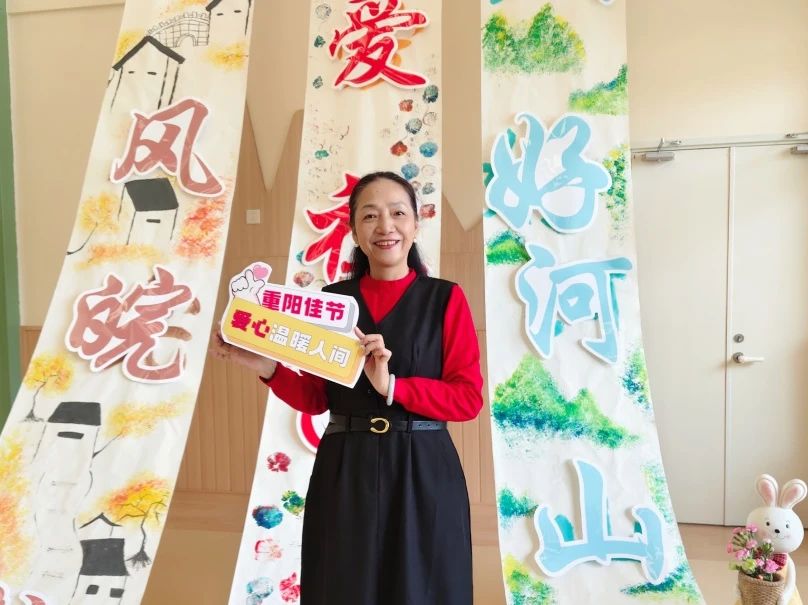 风
皖
爱
好
河
山
重阳佳节
爱心温暖人间